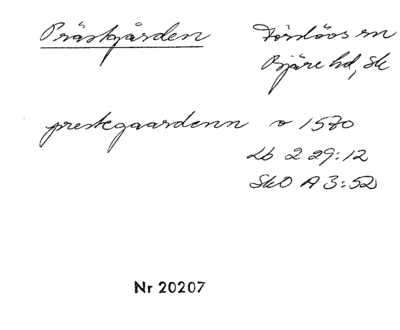 Prästgården Fördöos sn
Bjäre hd, Sk
prestegaardenn o 1570
Lb 2 29:12
SkO A 3:52
Nr 20207